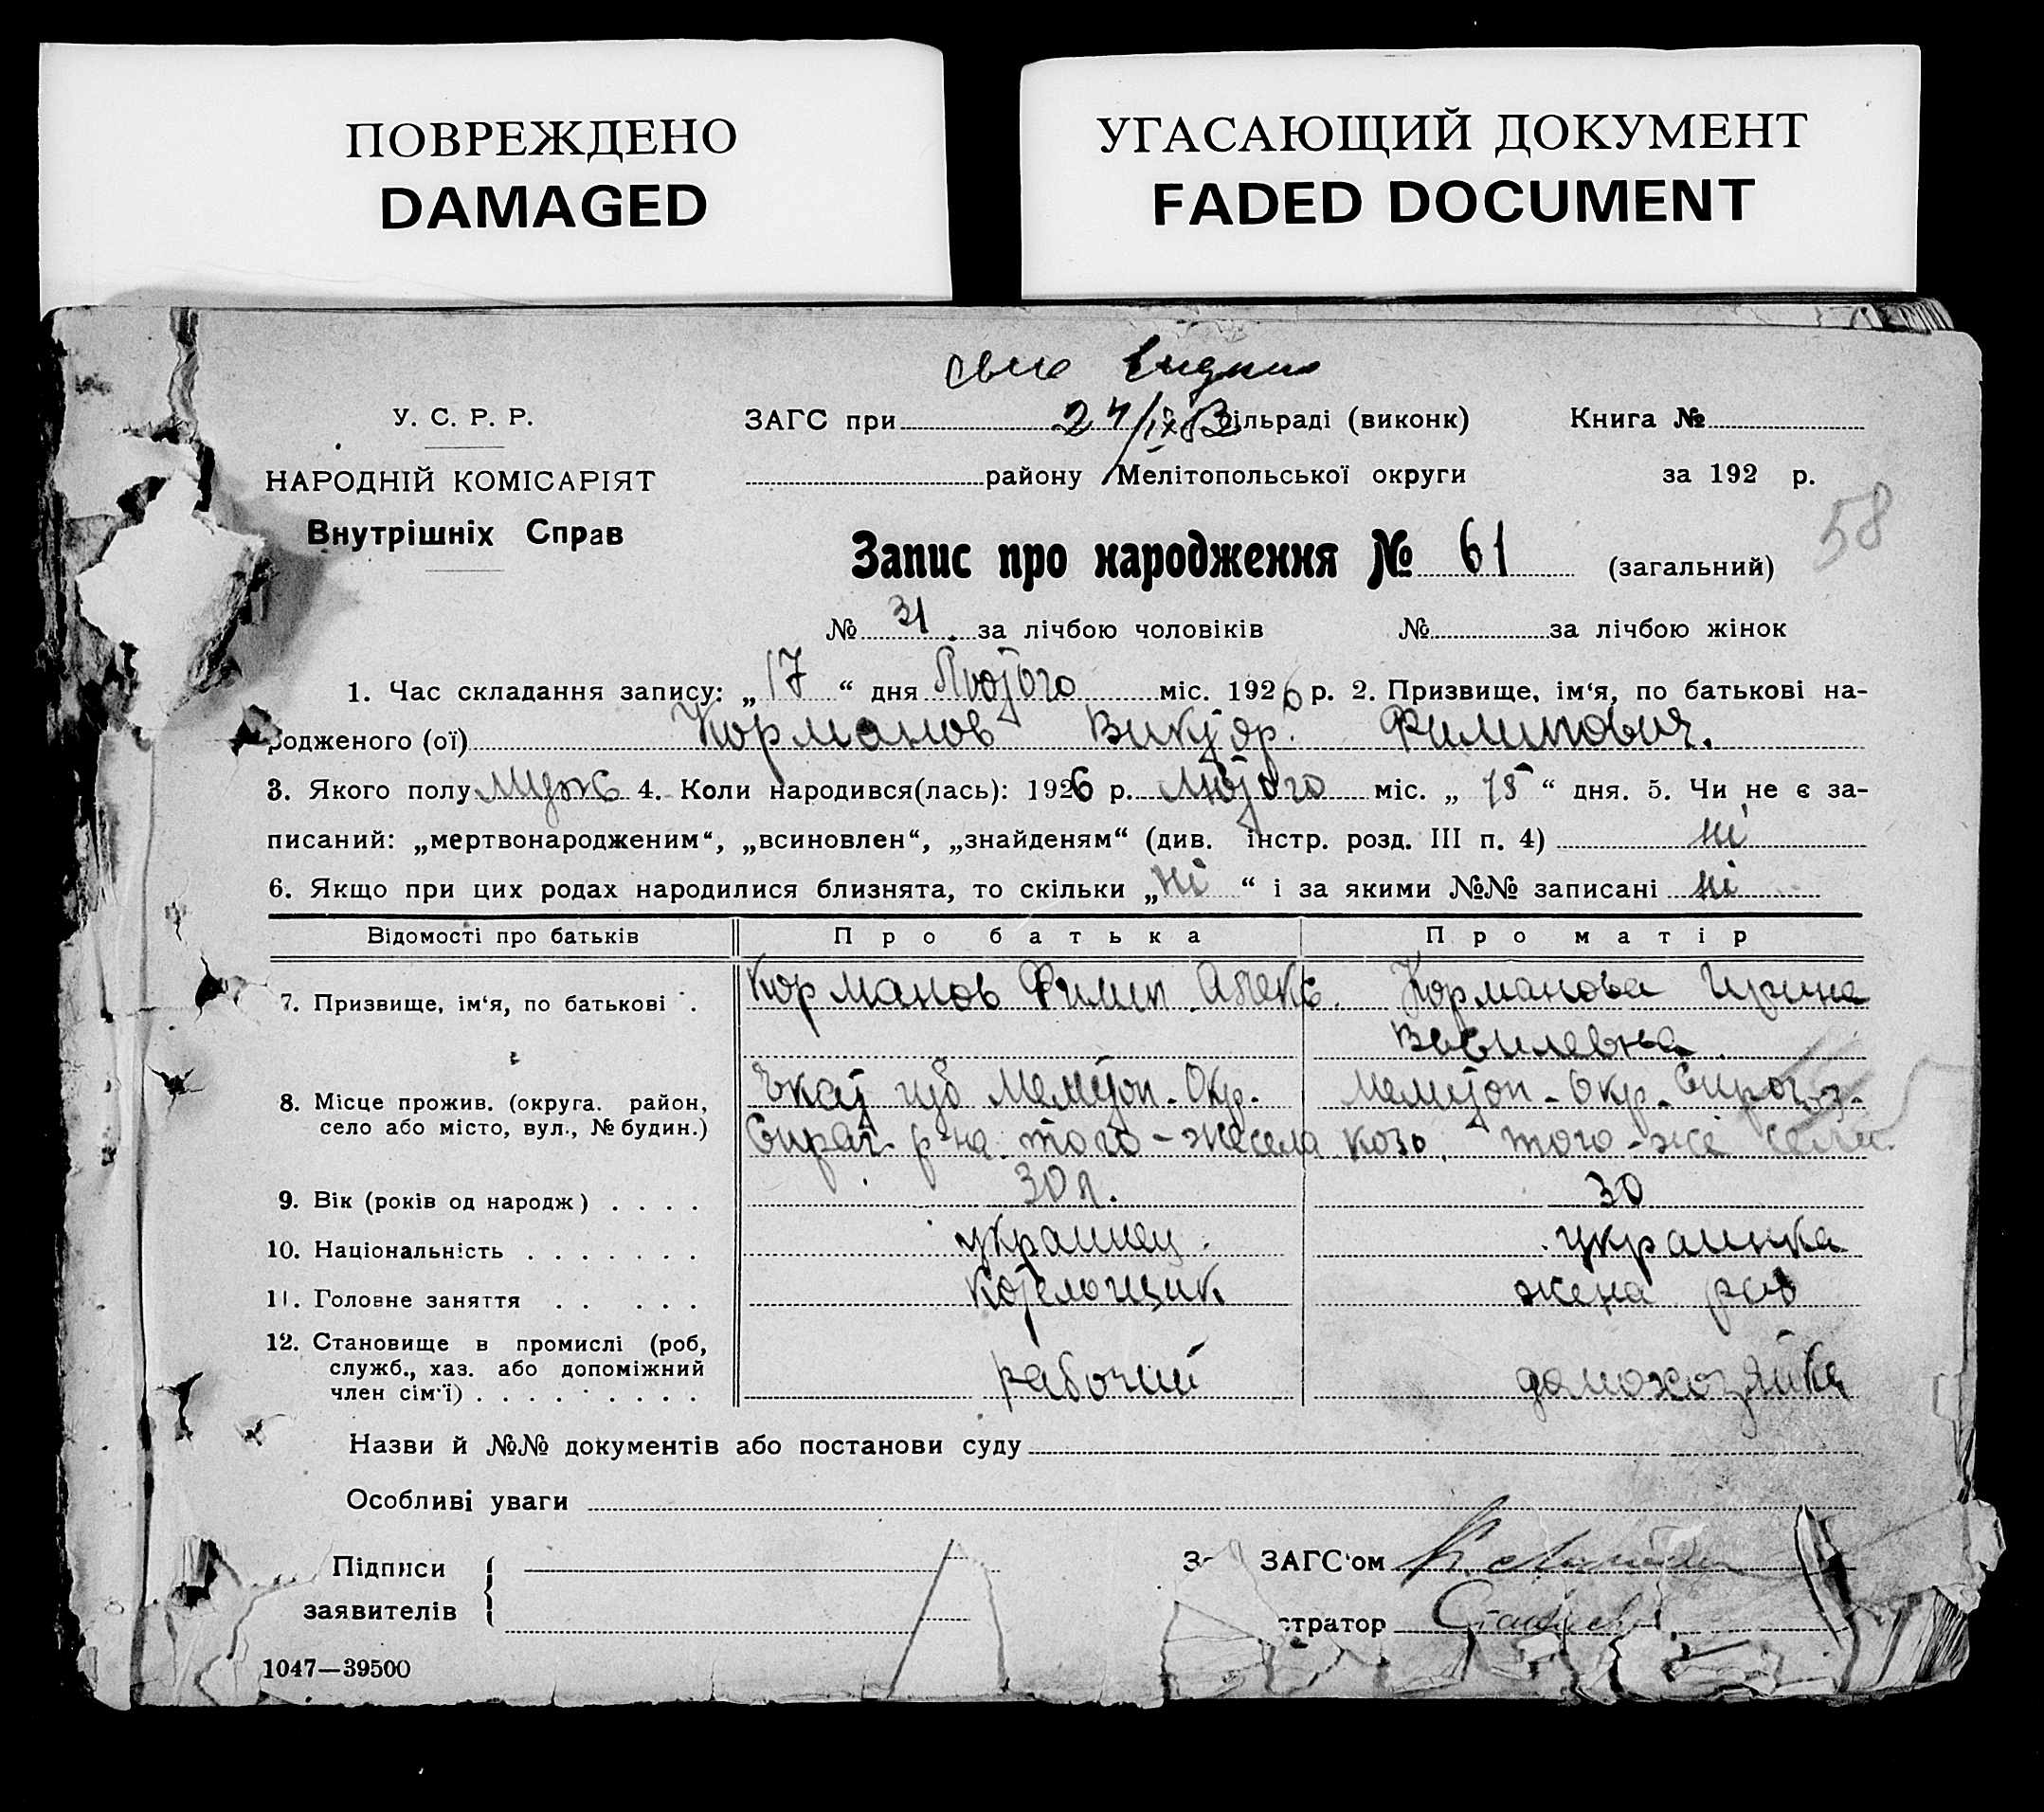 ПОВРЕЖДЕНО
DAMAGED
УГАСАЮЩИЙ ДОКУМЕНТ
FADED DOCUMENT
У. С. Р. Р.
НАРОДНІЙ КОМІСАРІЯТ
Внутрішніх Справ
ЗАГС при 24/IX сільраді (виконк)
району Мелітопольської округи
Книга №
за 192 р.
58
Запис про народження № 61 (загальний)
№ 31 за лічбою чоловіків № за лічбою жінок
1. Час складання запису: „17“ дня Лютого міс. 1926 р. 2. Призвище, ім‘я, по батькові на-
родженого (ої) Корманов Виктор. Филипович.
3. Якого полу муж 4. Коли народився(лась): 1926 р. Лютого міс. „15“ дня. 5. Чи не є за-
писаний: „мертвонародженим“, „всиновлен“, „знайденям“ (див. інстр. розд. III п. 4) ні
6. Якщо при цих родах народилися близнята, то скільки „ні“ і за якими №№ записані ні
Відомості про батьків Про батька Про матір
7. Призвище, ім‘я, по батькові . Корманов Филип Алекс. Корманова Ирина
Васильевна.
8. Місце прожив. (округа. район, Екат губ Мелитоп. Окр. Мелитоп. Окр. Сирог
село або місто, вул., № будин.) Сираг. р-на того-же села того-же села
9. Вік (років од народж) . . . . 30 л. 30
10. Національність . . . . . . . украинец. украинка
11. Головне заняття . . . . . Котельщик жена раб
12. Становище в промислі (роб,
служб., хаз. або допоміжний рабочий домохозяйка
член сім‘ї) . . . . . . . .
Назви й №№ документів або постанови суду
Особливі уваги
Підписи
заявителів
ЗАГС‘ом
стратор
1047—39500